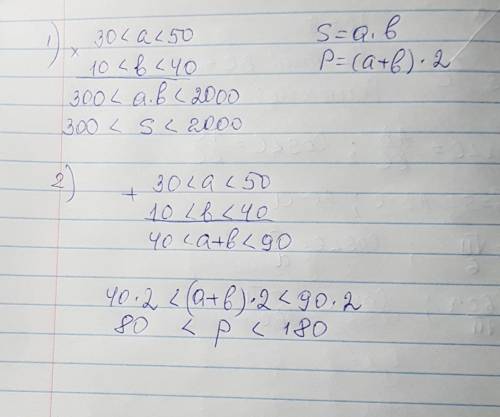 1) × 30 < a < 50
10 < b < 40
300 < a.b < 2000
300 < S < 2000
S = a.b
P = (a+b) · 2
2) + 30 < a < 50
10 < b < 40
40 < a+b < 90
40 · 2 < (a+b) · 2 < 90 · 2
80 < P < 180